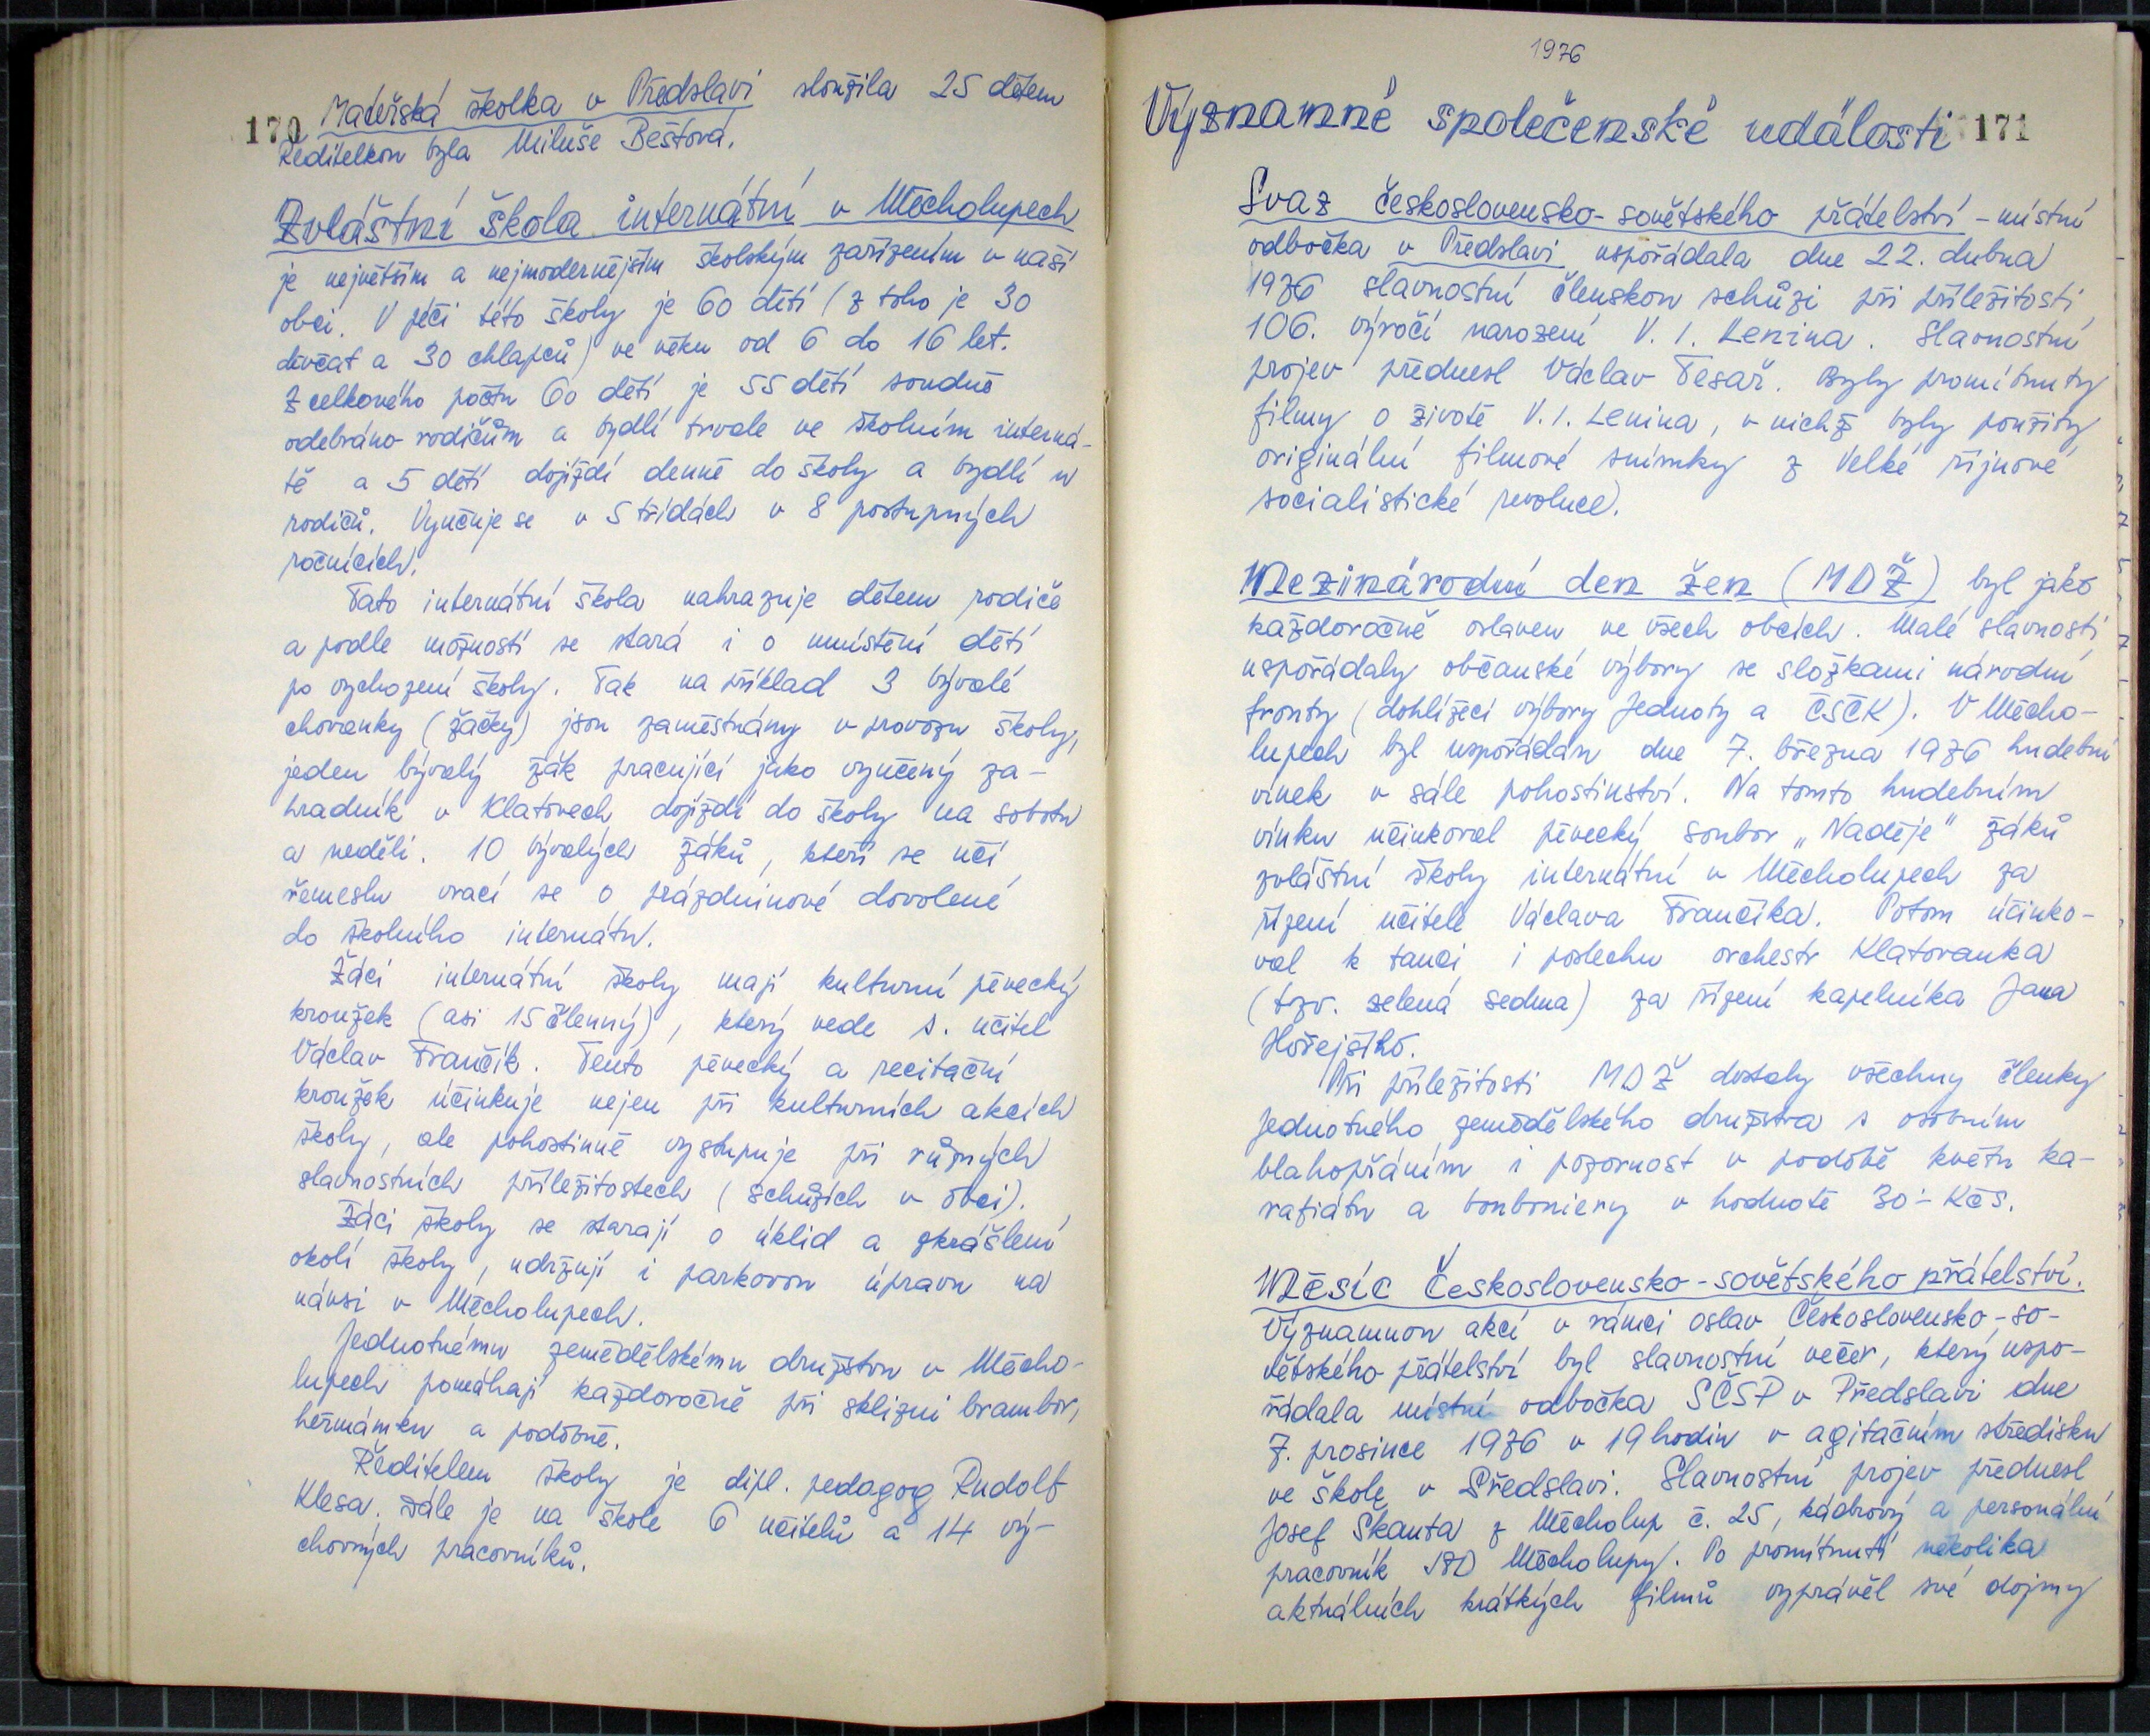 170
Mateřská školka v Předslavi sloužila 25 dětem
Ředitelkou byla Miluše Beštová.
Zvláštní škola internátní v Měcholupech
je největším a nejmodernějším školským zařízením v naší
obci. V péči této školy je 60 dětí (z toho je 30
děvčat a 30 chlapců) ve věku od 6 do 16 let.
Z celkového počtu 60 dětí je 55 dětí soudně
odebráno rodičům a bydlí trvale ve školním interná-
tě a 5 dětí dojíždí denně do školy a bydlí u
rodičů. Vyučuje se v 5 třídách v 8 postupných
ročnících.
Tato internátní škola nahrazuje dětem rodiče
a podle možností se stará i o umístění dětí
po vychození školy. Tak na příklad 3 bývalé
chovanky (žačky) jsou zaměstnány v provozu školy,
jeden bývalý žák pracující jako vyučený za-
hradník v Klatovech dojíždí do školy na sobotu
a neděli. 10 bývalých žáků, kteří se učí
řemeslu vrací se o prázdninové dovolené
do školního internátu.
Žáci internátní školy mají kulturní pěvecký
kroužek (asi 15 členný), který vede s. učitel
Václav Frančík. Tento pěvecký a recitační
kroužek účinkuje nejen při kulturních akcích
školy, ale pohostinně vystupuje při různých
slavnostních příležitostech (schůzích v obci).
Žáci školy se starají o úklid a zkrášlení
okolí školy, udržují i parkovou úpravu na
návsi v Měcholupech.
Jednotnému zemědělskému družstvu v Měcho-
lupech pomáhají každoročně při sklizni brambor,
heřmánku a podobně.
Ředitelem školy je dipl. pedagog Rudolf
Klesa. Dále je na škole 6 učitelů a 14 vý-
chovných pracovníků.
1976
Významné společenské události 171
Svaz československo-sovětského přátelství - místní
odbočka v Předslavi uspořádala dne 22. dubna
1976 slavnostní členskou schůzi při příležitosti
106. výročí narození V. I. Lenina. Slavnostní
projev přednesl Václav Tesař. Byly promítnuty
filmy o životě V. I. Lenina, v nichž byly použity
originální filmové snímky z Velké říjnové
socialistické revoluce.
Mezinárodní den žen (MDŽ) byl jako
každoročně oslaven ve všech obcích. Malé slavnosti
uspořádaly občanské výbory se složkami národní
fronty (dohlížecí výbory Jednoty a ČSČK). V Měcho-
lupech byl uspořádán dne 7. března 1976 hudební
vínek v sále pohostinství. Na tomto hudebním
vínku účinkoval pěvecký soubor „Naděje" žáků
zvláštní školy internátní v Měcholupech za
řízení učitele Václava Frančíka. Potom účinko-
val k tanci i poslechu orchestr Klatovanka
(tzv. zelená sedma) za řízení kapelníka Jana
Hořejšího.
Při příležitosti MDŽ dostaly všechny členky
Jednotného zemědělského družstva s osobním
blahopřáním i pozornost v podobě květu ka-
rafiátu a bonboniery v hodnotě 30·- Kčs.
Měsíc Československo-sovětského přátelství.
Významnou akcí v rámci oslav Československo-so-
větského přátelství byl slavnostní večer, který uspo-
řádala místní odbočka SČSP v Předslavi dne
7. prosince 1976 v 19 hodin v agitačním středisku
ve škole v Předslavi. Slavnostní projev přednesl
Josef Skanta z Měcholup č. 25, kádrový a personální
pracovník JZD Měcholupy. Po promítnutí několika
aktuálních krátkých filmů vyprávěl své dojmy